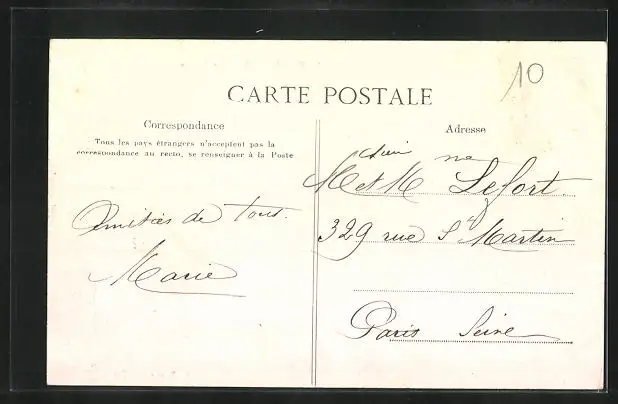 10
CARTE POSTALE
Correspondance
Tous les pays étrangers n'acceptent pas la
correspondance au recto, se renseigner à la Poste
Amitiés de tous.
Marie
Adresse
M et M Lefort.
329 rue St Martin
Paris Seine